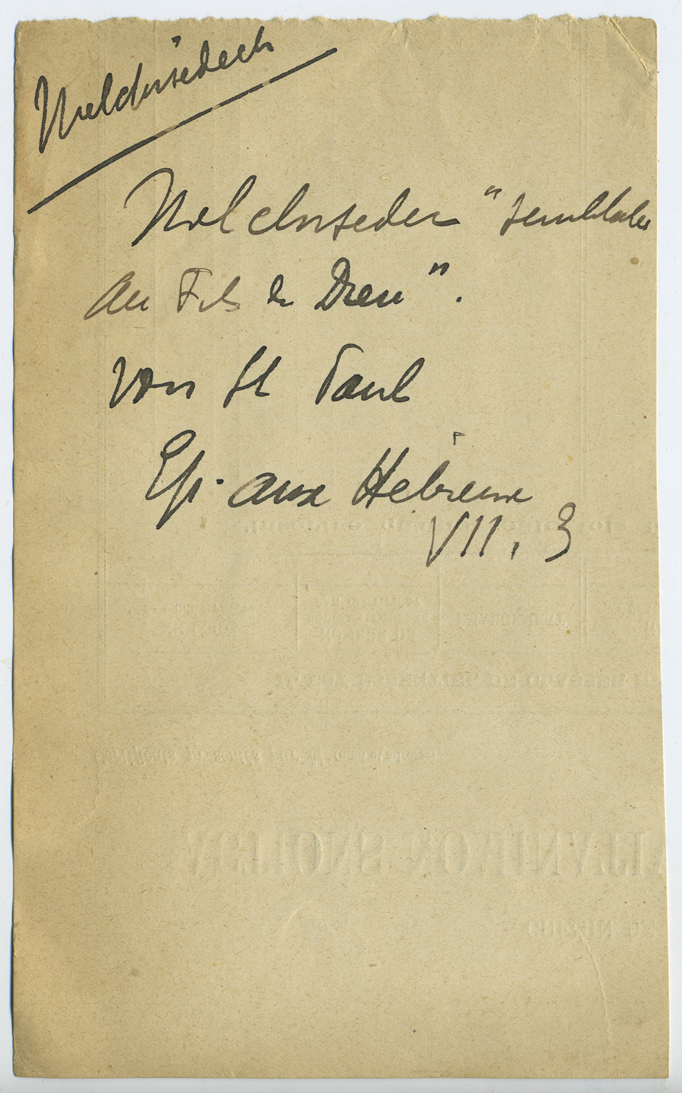 Melchisedech
Melchisedec "semblable
au Fils de Dieu".
voir St Paul
Ep. aux Hébreux
VII. 3